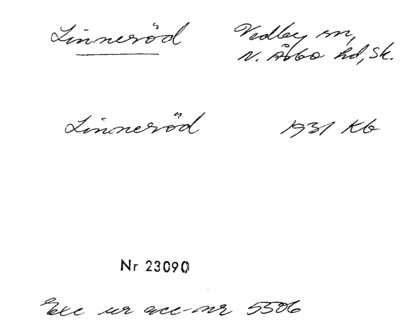 Linneröd Vedby sn,
N. Åsbo hd, Sk.
Linneröd 1931 Kb
Nr 23090
Exc ur acc-nr 5506